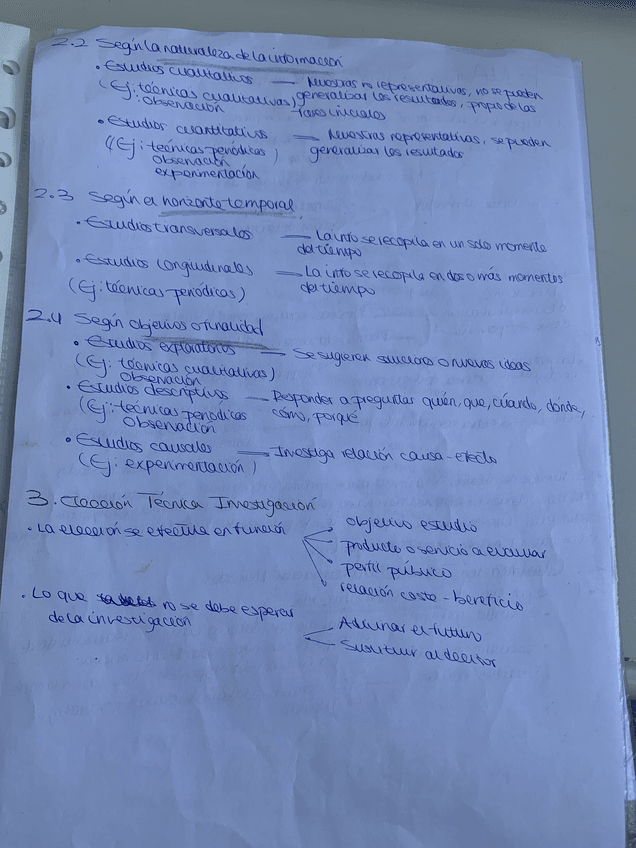 2.2 Según la naturaleza de la información
• Estudios cualitativos — Muestras no representativas, no se pueden
(Ej: técnicas cualitativas) generalizar los resultados, propio de las
observación fases iniciales
• Estudios cuantitativos — Muestras representativas, se pueden
(Ej: técnicas periódicas) generalizar los resultados
observación
experimentación
2.3 Según el horizonte temporal
• Estudios transversales — La info se recopila en un solo momento
del tiempo
• Estudios longitudinales — La info se recopila en dos o más momentos
(Ej: técnicas periódicas) del tiempo
2.4 Según objetivos o finalidad
• Estudios exploratorios — Se sugieren o nuevas ideas
(Ej: técnicas cualitativas)
observación
• Estudios descriptivos — Responder a preguntas quién, que, cúando, dónde,
(Ej: técnicas periódicas cómo, porqué
observación
• Estudios causales — Investiga relación causa-efecto
(Ej: experimentación)
3. Elección Técnica Investigación
• La elección se efectúa en función objetivo estudio
producto o servicio a evaluar
perfil público
relación coste-beneficio
• Lo que no se debe esperar
de la investigación Adivinar el futuro
Sustituir al decisor